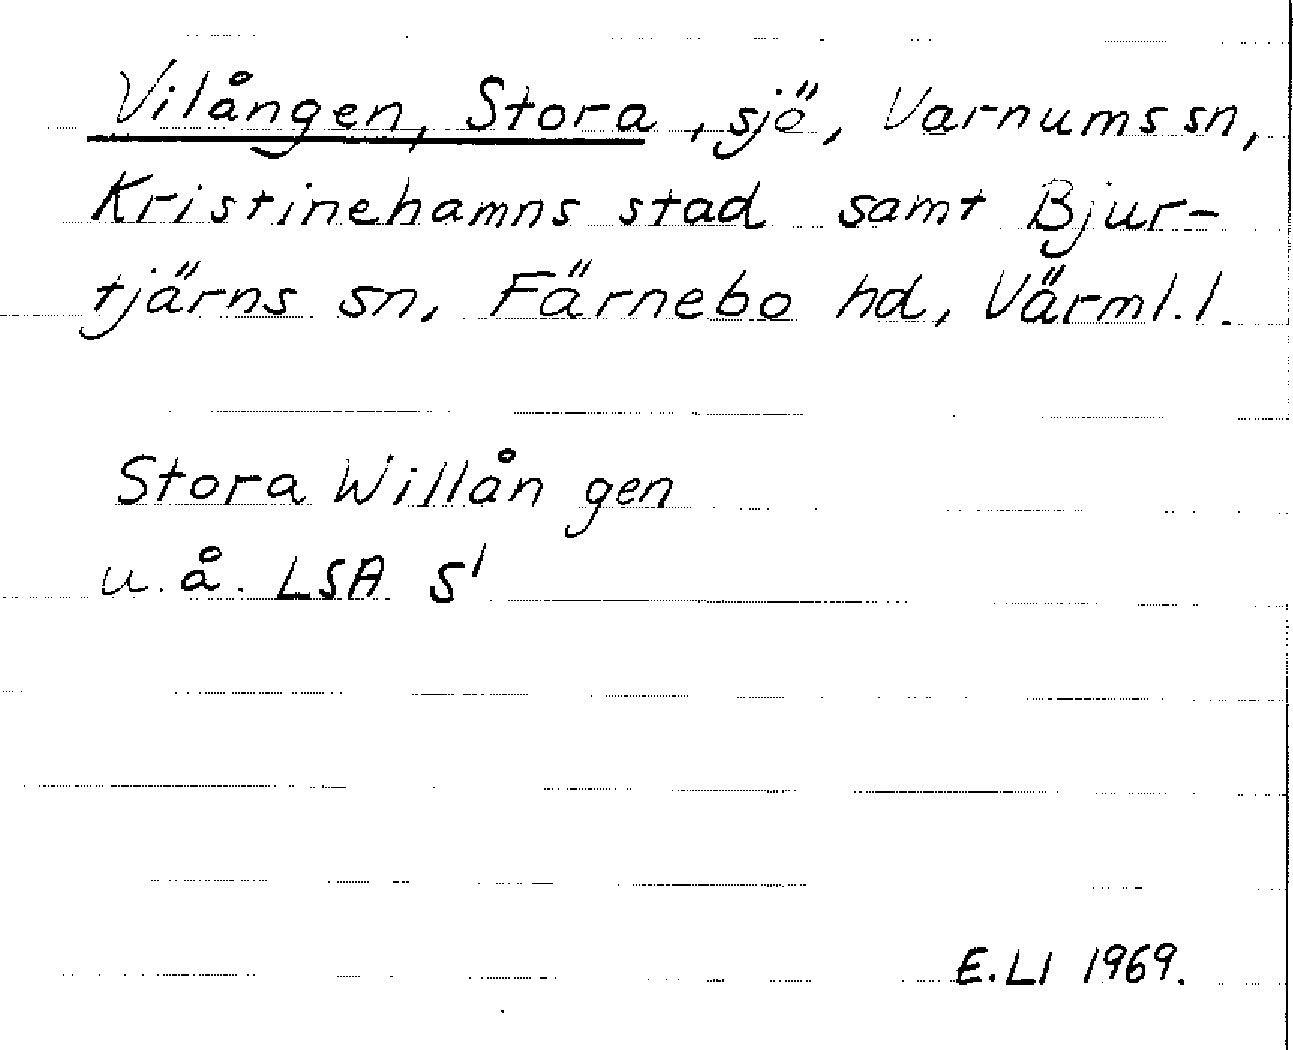 Vilången, Stora, sjö, Varnums sn,
Kristinehamns stad samt Bjur-
tjärns sn, Färnebo hd, Värml.l.
Stora Willån gen
u.å. LSA S'
E.LI 1969.